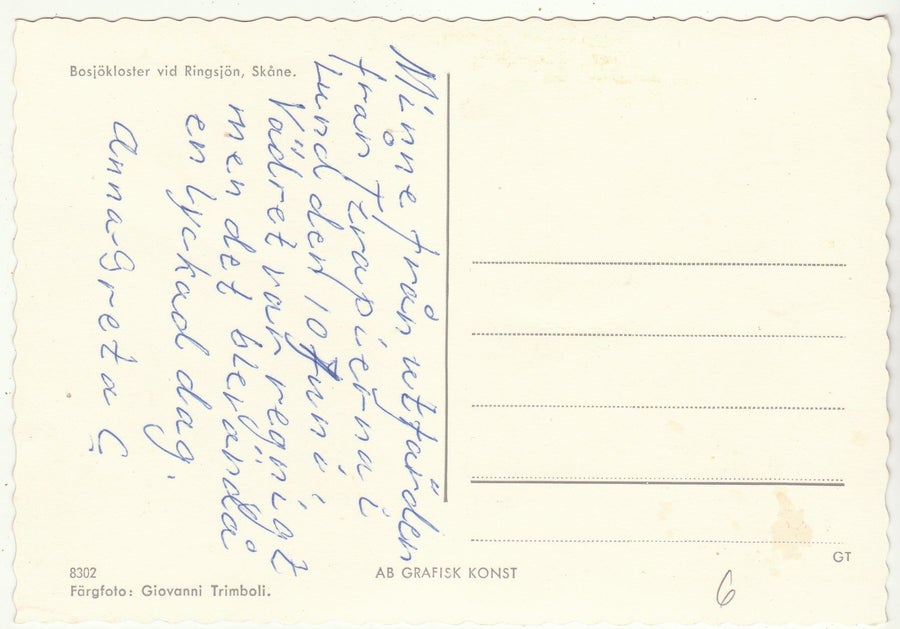 Bosjökloster vid Ringsjön, Skåne.
Minne från utfärden
från i
Lund den 10 Juni
Vädret var regnigt
men det blev ändå
en lyckad dag.
Anna-Greta C
8302
Färgfoto: Giovanni Trimboli.
AB GRAFISK KONST
GT
6